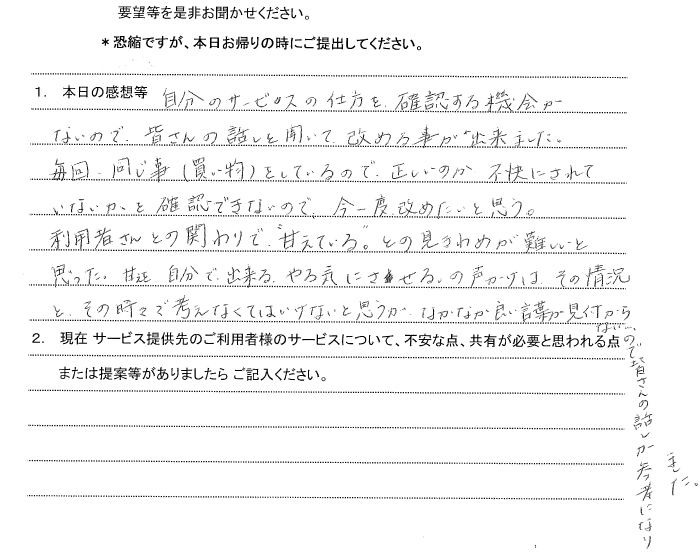 要望等を是非お聞かせください。
＊恐縮ですが、本日お帰りの時にご提出してください。
1. 本日の感想等 自分のサービスの仕方を、確認する機会が
ないので、皆さんの話しを聞いて、改める事が出来ました。
毎回、同じ事(買い物)をしているので、正しいのか 不快にされて
いないか、と 確認できないので、今一度、改めたいと思う。
利用者さんとの関わりで、"甘えている"。との見きわめが難しいと
思った。 自分で、出来る、やる気にさせる、の声かけは、その情況
と、その時々で考えなくてはいけないと思うが、なかなか良い言葉が見付から
ない…
ので皆さんの話しが参考になり
ました。
2. 現在 サービス提供先のご利用者様のサービスについて、不安な点、共有が必要と思われる点
または提案等がありましたら ご記入ください。